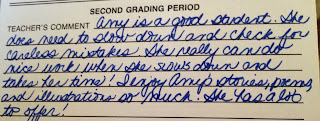 SECOND GRADING PERIOD
TEACHER'S COMMENT Amy is a good student. She
does need to slow down and check for
careless mistakes. She really can do
nice work when she slows down and
takes her time! I enjoy Amy's stories, poems,
and illustrations so much. She has a lot
to offer!